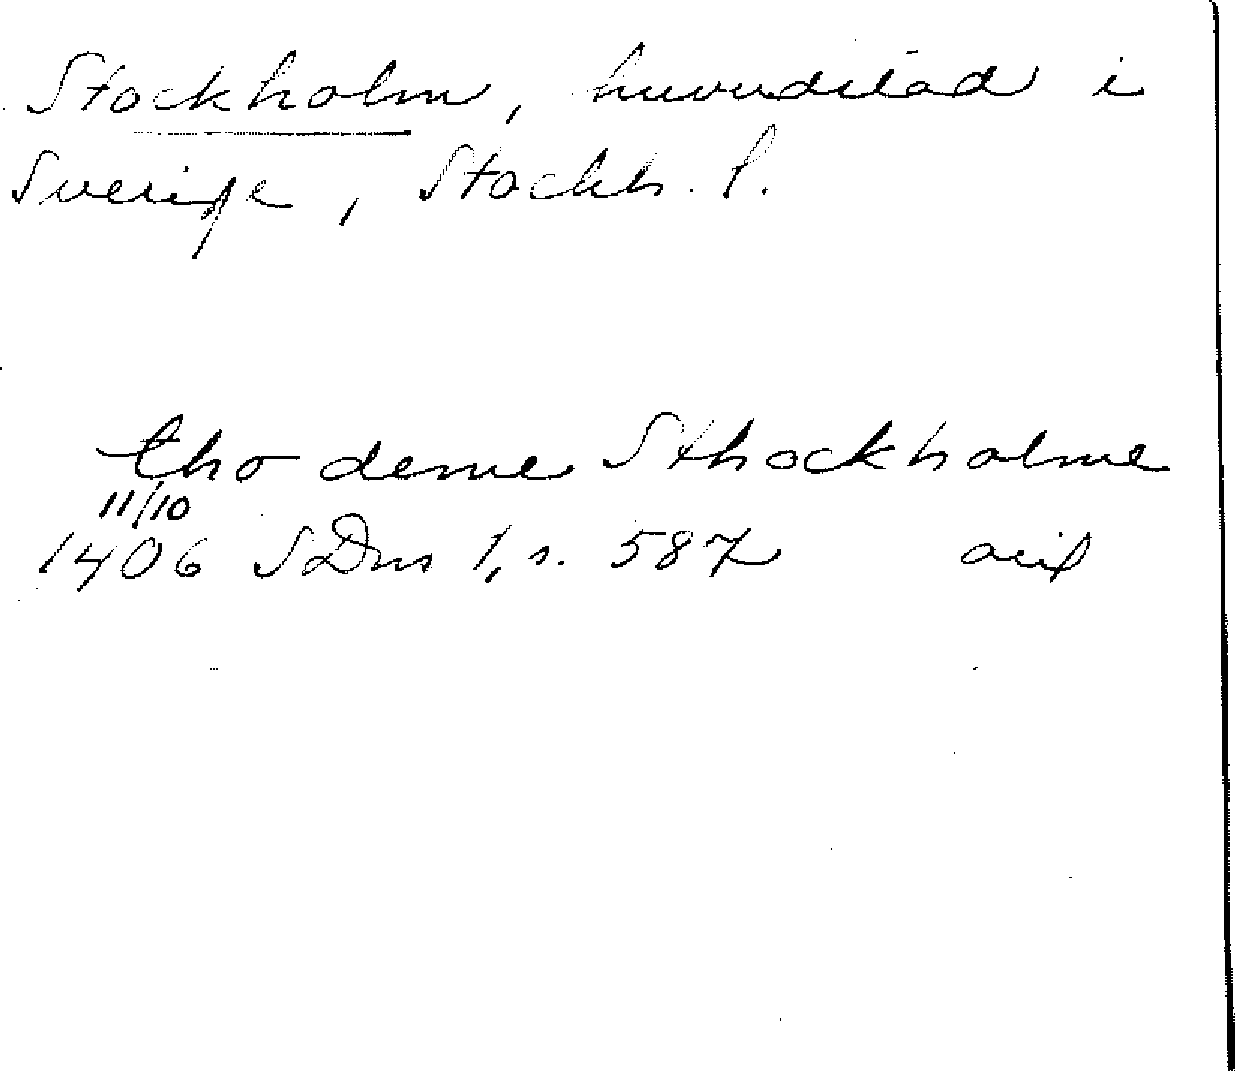 Stockholm, huvudstad i
Sverige, Stockh. l.
tho deme Sthockholme
11/10
1406 SDns 1, s. 587 avil